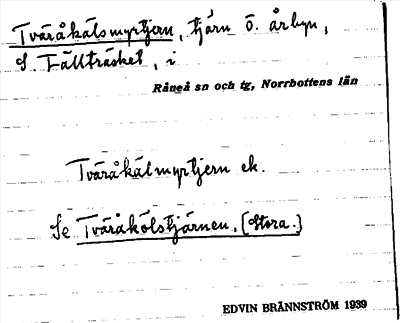 Tväråkälsmyrtjern, tjärn ö. årbyn,
S. Fällträsket, i
Råneå sn och tg, Norrbottens län
Tväråkälmyrtjern ek.
Se Tväråkölstjärnen, (Stora.)
EDVIN BRÄNNSTRÖM 1939